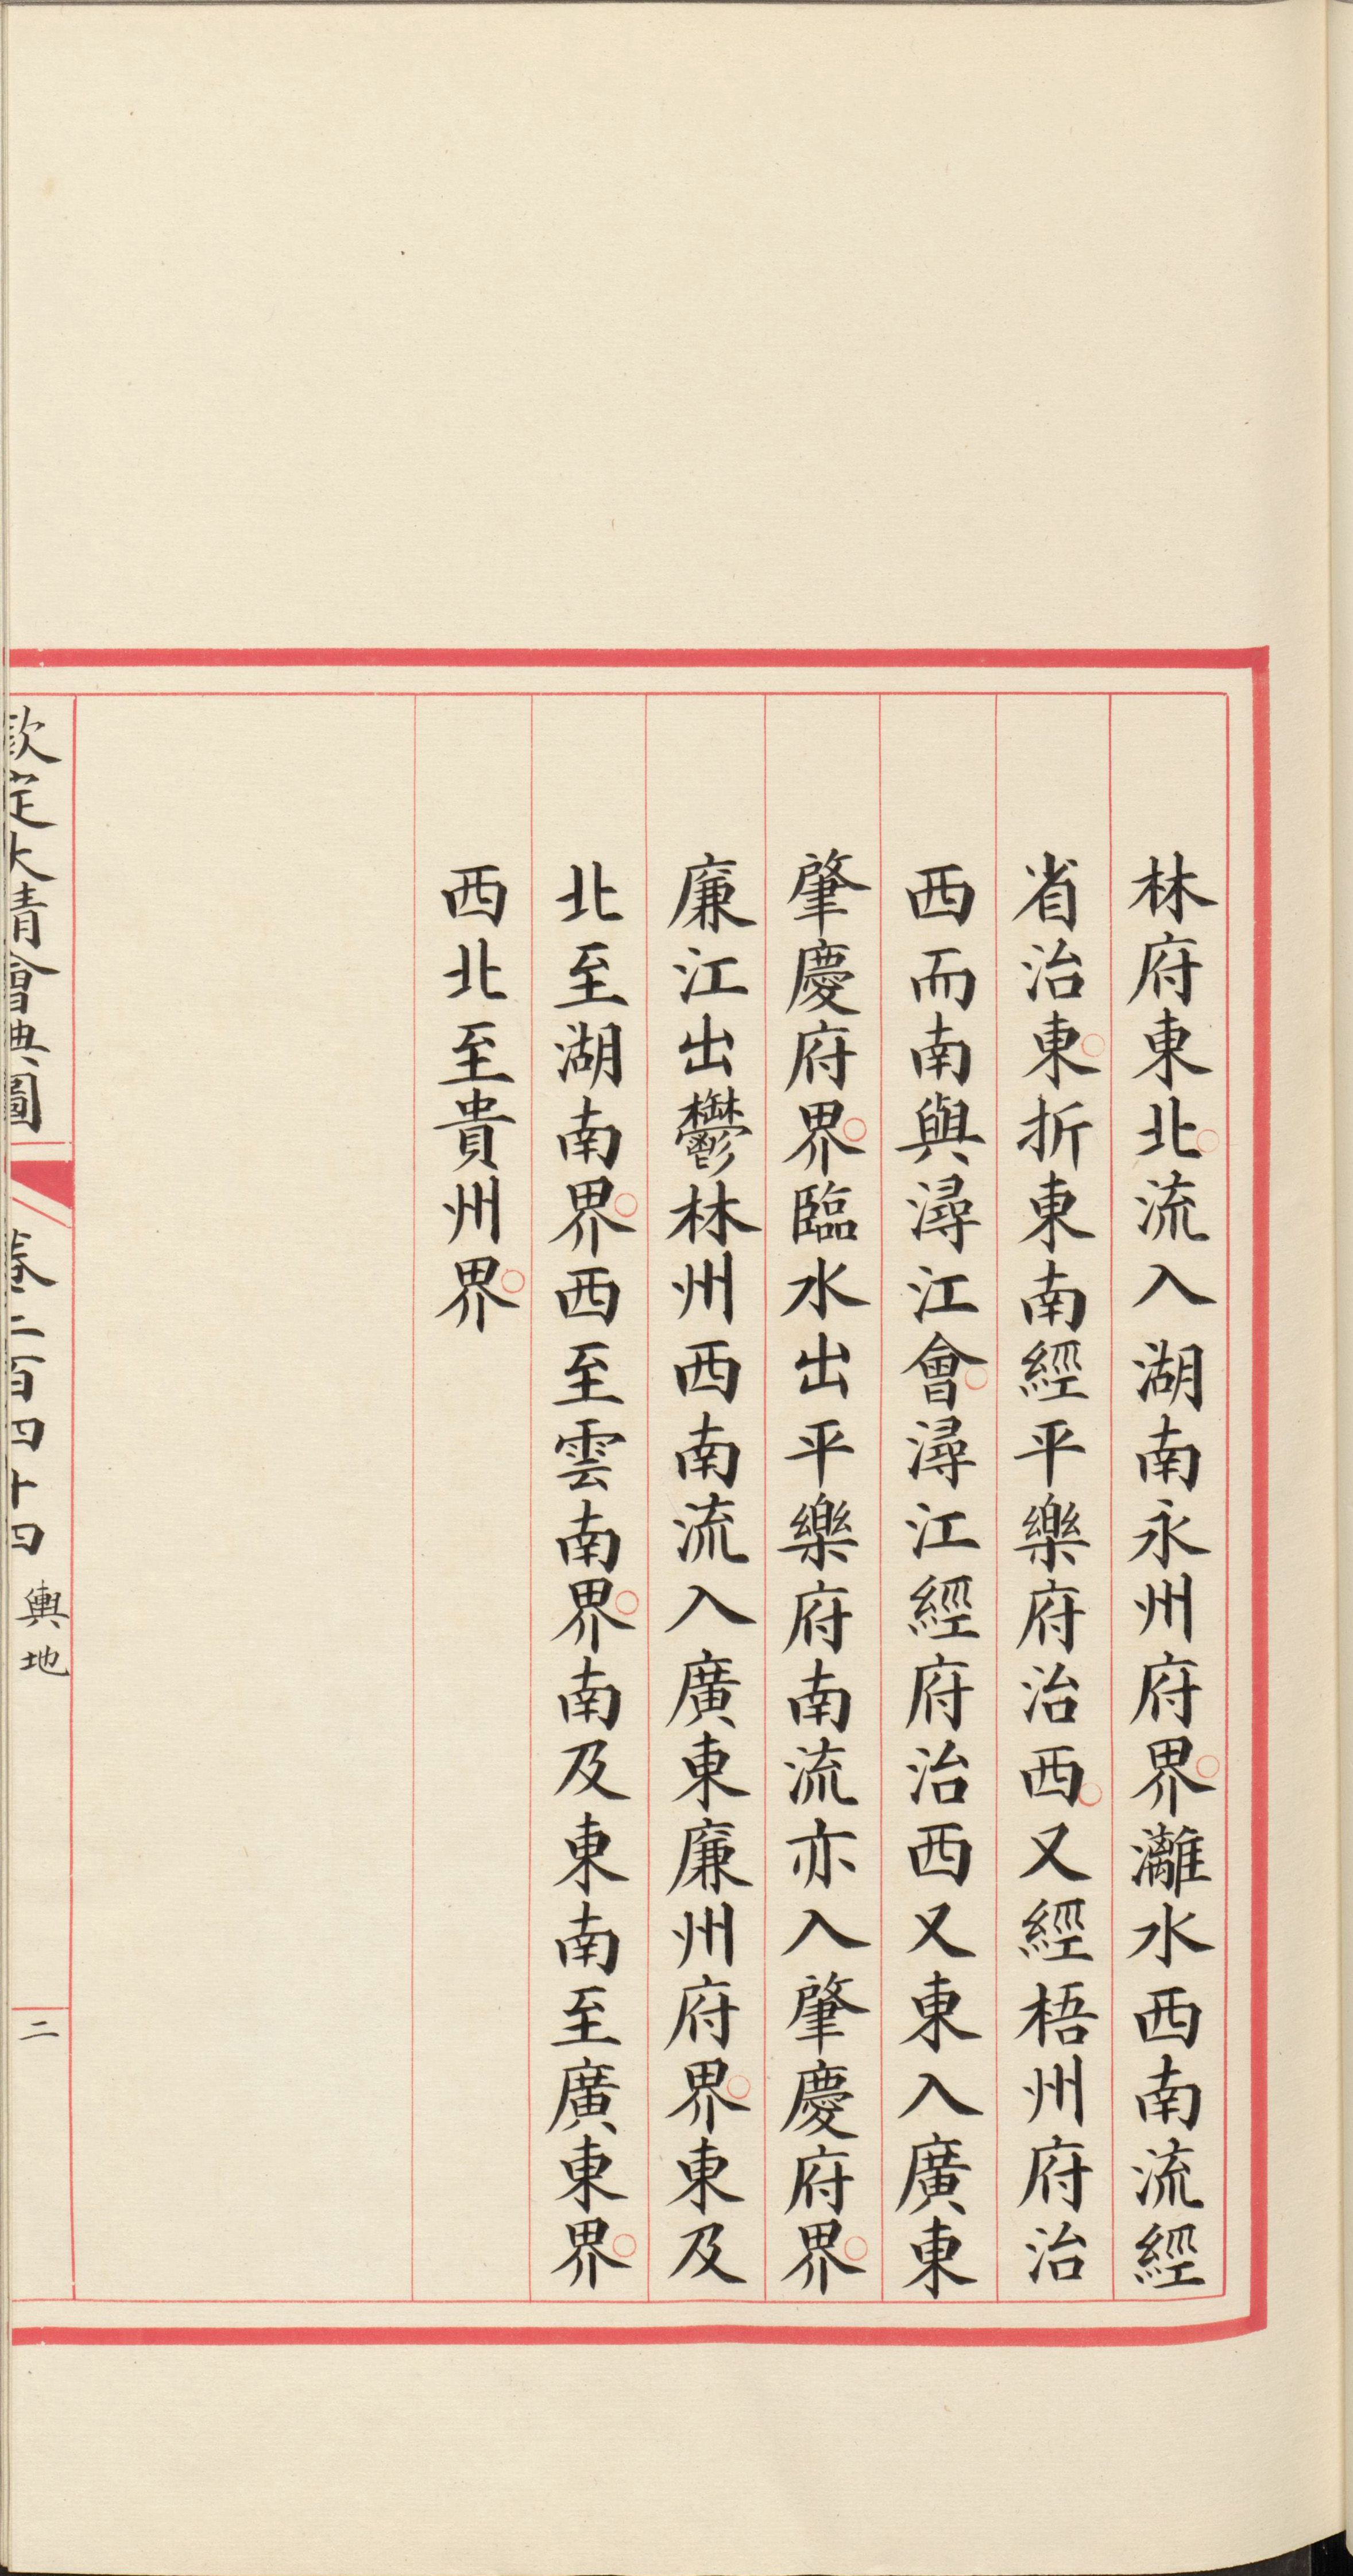 林府東北。流入湖南永州府界。灕水西南流經
省治東。折東南經平樂府治西。又經梧州府治
西而南與潯江會。潯江經府治西又東入廣東
肇慶府界。臨水出平樂府南流亦入肇慶府界。
廉江出鬱林州西南流入廣東廉州府界。東及
北至湖南界。西至雲南界。南及東南至廣東界。
西北至貴州界。
欽定大清會典圖 卷二百四十四 輿地 二